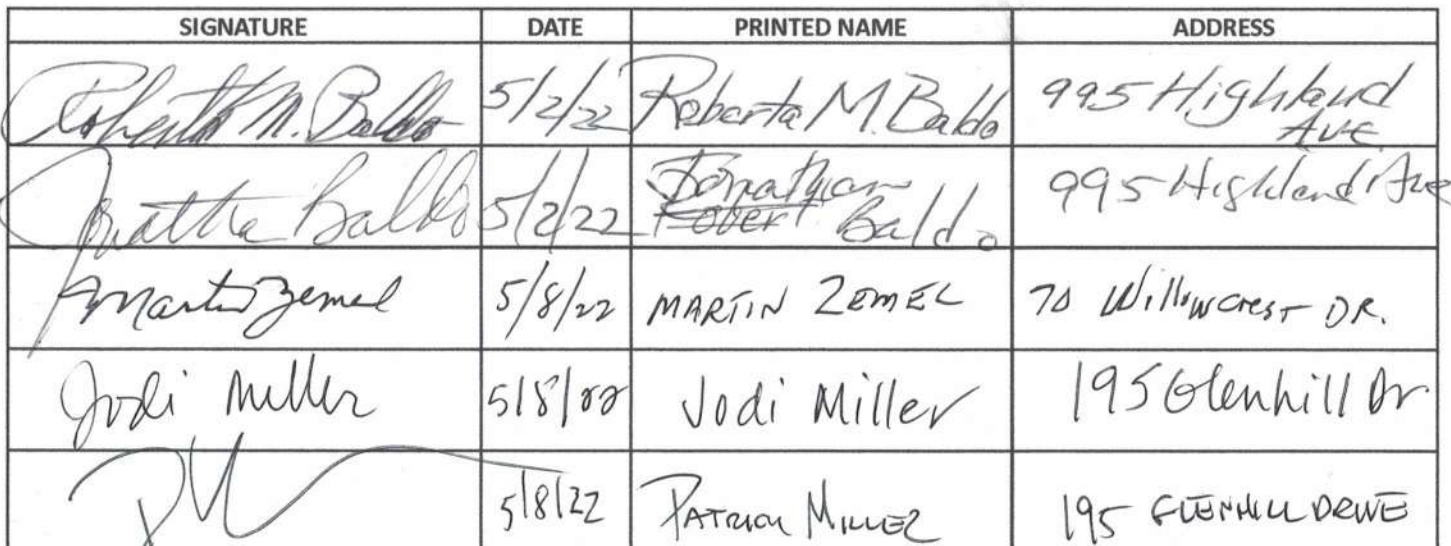 SIGNATURE DATE PRINTED NAME ADDRESS
Roberta M. Baldo 5/2/22 Roberta M. Baldo 995 Highland
Ave
Jonathan Baldo 5/2/22 Jonathan 995 Highland Ave
Robert Baldo
Martin Zemel 5/8/22 MARTIN ZEMEL 70 Willowcrest DR.
Jodi Miller 5/8/22 Jodi Miller 195 Glenhill Dr
5/8/22 PATRICK MILLER 195 GLENHILL DRIVE